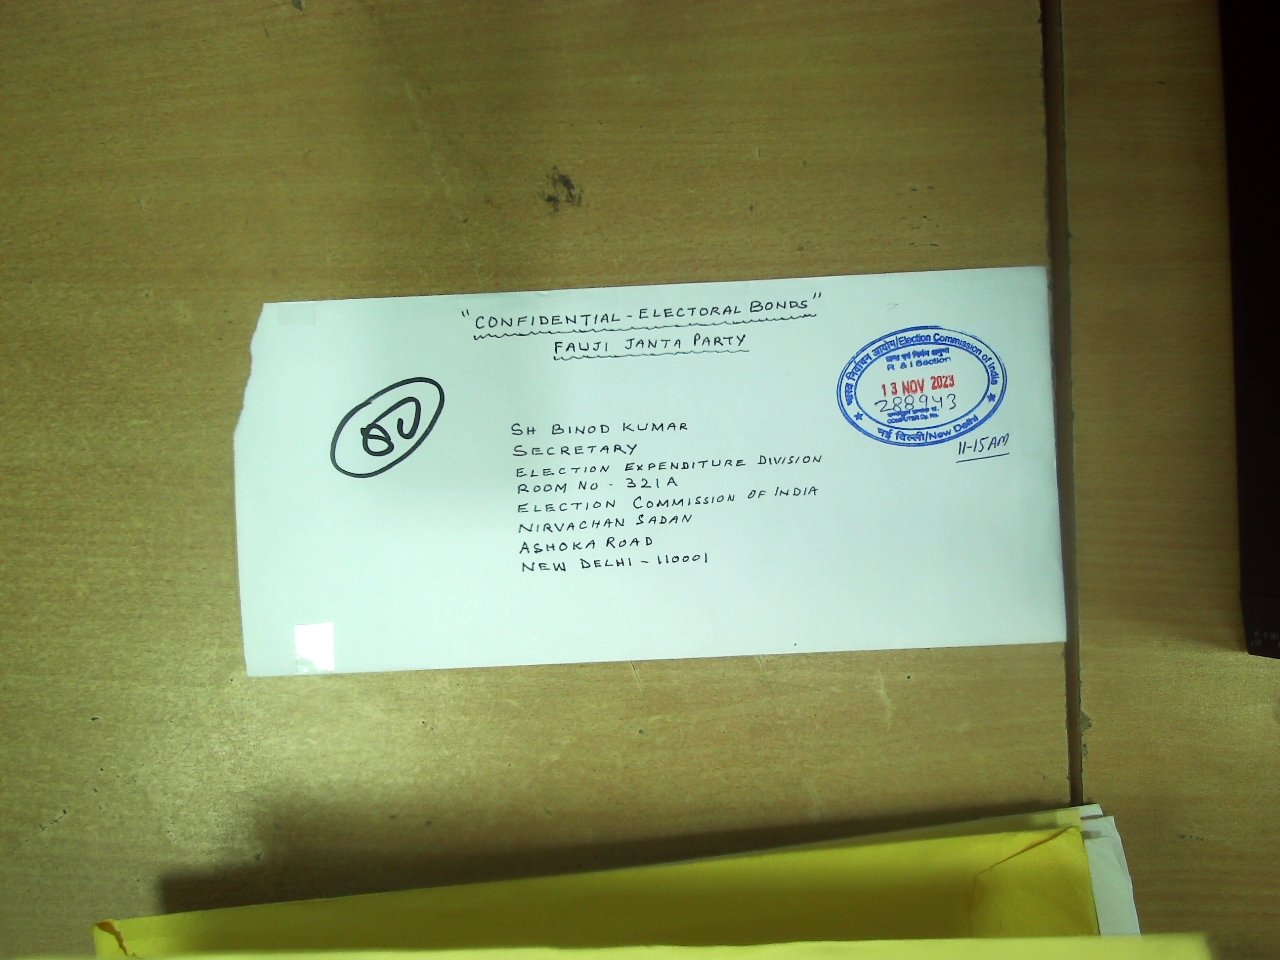 "CONFIDENTIAL - ELECTORAL BONDS"
FAUJI JANTA PARTY
भारत निर्वाचन आयोग/Election Commission of India
R & I Section
13 NOV 2023
288943
COMPUTER Dy. No.
नई दिल्ली/New Delhi
11-15AM
SH BINOD KUMAR
SECRETARY
ELECTION EXPENDITURE DIVISION
ROOM NO - 321A
ELECTION COMMISSION OF INDIA
NIRVACHAN SADAN
ASHOKA ROAD
NEW DELHI - 110001